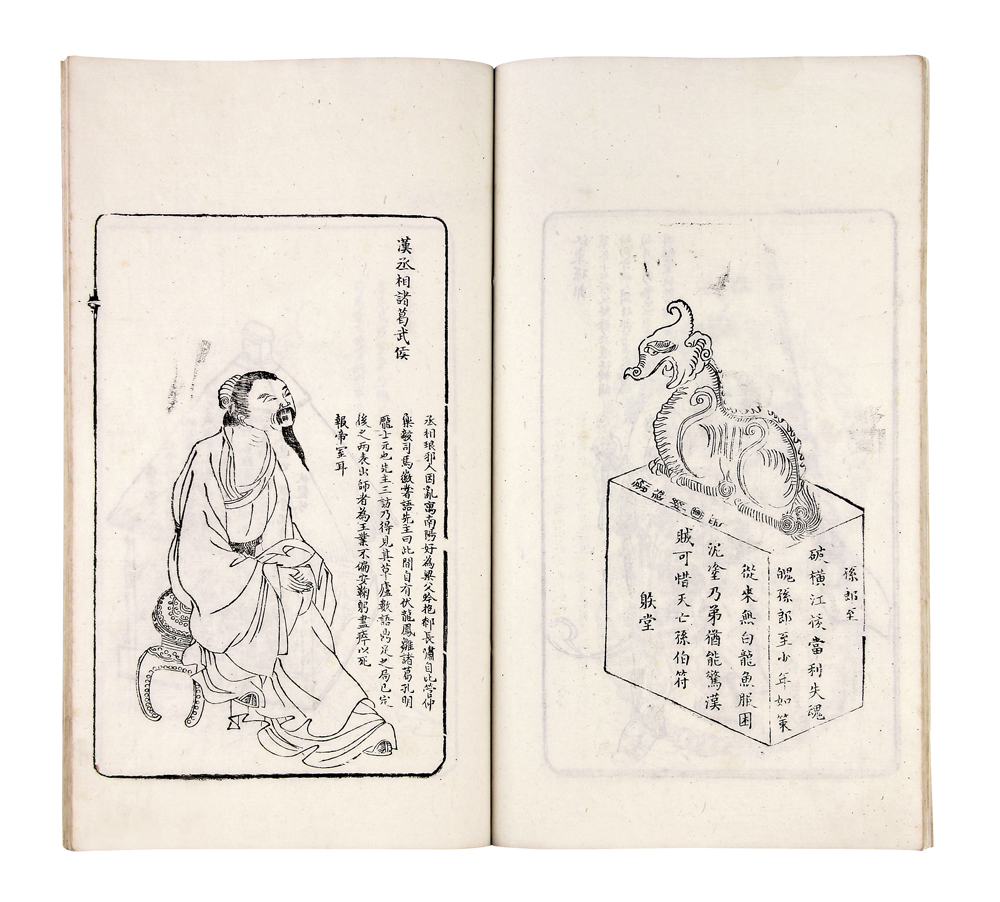 孫郎至
破橫江後當利失魂
魄孫郎至少年如策
從來無白龍魚服困
泥塗乃弟猶能驚漢
賊可惜天亡孫伯符
堂
漢丞相諸葛武侯
丞相琅邪人因亂寓南陽好為梁父吟抱膝長嘯自比管仲
樂毅司馬徽嘗語先主曰此間自有伏龍鳳雛諸葛孔明
龐士元也先主三訪乃得見其草廬數語鼎足之局已定
後之兩表出師者為王業不偏安鞠躬盡瘁以死
報帝室耳